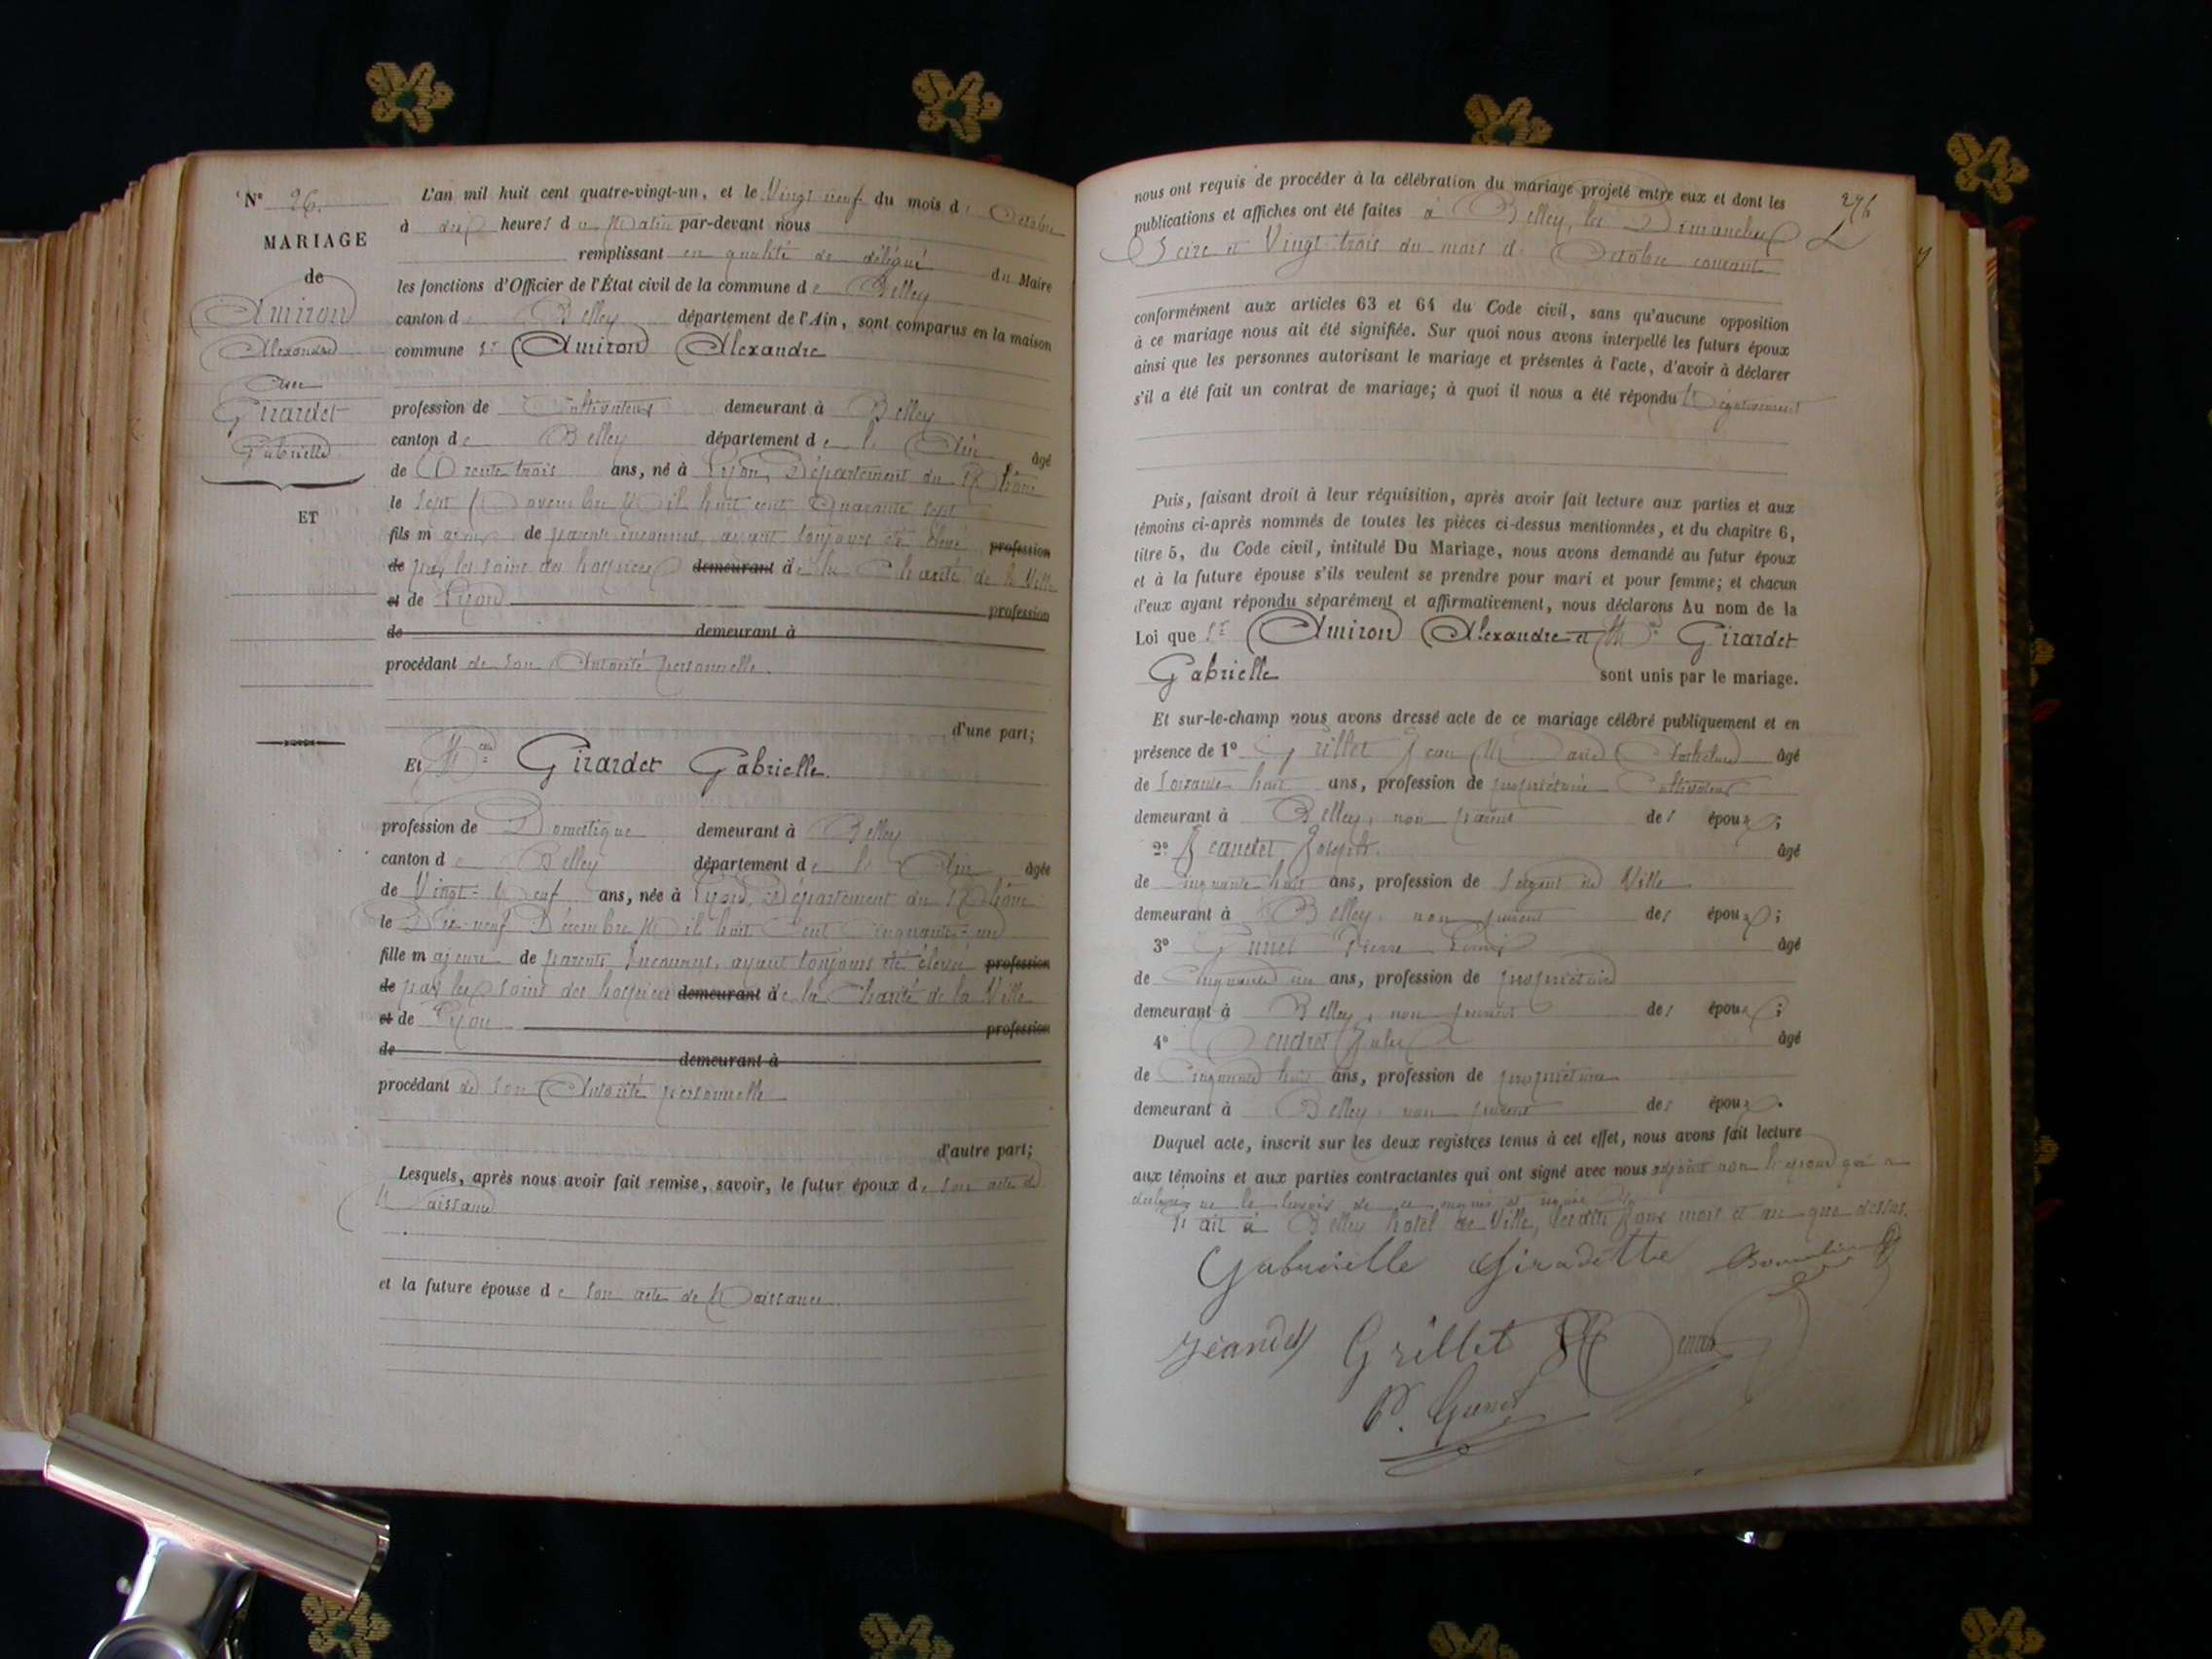 N° 26.
MARIAGE
de
Amiron
Alexandre
Avec
Girardet
Gabrielle
ET
L'an mil huit cent quatre-vingt-un, et le Vingt neuf du mois d' Octobre
à dix heures du Matin par-devant nous
remplissant en qualité de délégué du Maire
les fonctions d'Officier de l'État civil de la commune de Belley
canton de Belley département de l'Ain, sont comparus en la maison
commune Sr Amiron Alexandre
profession de Cultivateur demeurant à Belley
canton de Belley département de l'Ain âgé
de Trente trois ans, né à Lyon, Département du Rhône
le sept Novembre Mil huit cent Quarante sept
fils majeur de parents inconnus, ayant toujours été élevé profession
de par les soins des hospices demeurant de la Charité de la Ville
et de Lyon profession
de demeurant à
procédant de son Autorité personnelle.
d'une part;
Et Melle Girardet Gabrielle.
profession de Domestique demeurant à Belley
canton de Belley département de l'Ain âgée
de Vingt-Neuf ans, née à Lyon, Département du Rhône
le Dix-neuf Décembre Mil huit Cent Cinquante-un
fille majeure de parents Inconnus, ayant toujours été élevée profession
de par les soins des hospices demeurant de la Charité de la Ville
et de Lyon profession
de demeurant à
procédant de son Autorité personnelle
d'autre part;
Lesquels, après nous avoir fait remise, savoir, le futur époux de son acte de
Naissance
et la future épouse de son acte de Naissance.
296
nous ont requis de procéder à la célébration du mariage projeté entre eux et dont les
publications et affiches ont été faites à Belley, les Dimanches
Seize et Vingt-trois du mois d' Octobre courant
conformément aux articles 63 et 64 du Code civil, sans qu'aucune opposition
à ce mariage nous ait été signifiée. Sur quoi nous avons interpellé les futurs époux
ainsi que les personnes autorisant le mariage et présentes à l'acte, d'avoir à déclarer
s'il a été fait un contrat de mariage; à quoi il nous a été répondu Négativement
Puis, faisant droit à leur réquisition, après avoir fait lecture aux parties et aux
témoins ci-après nommés de toutes les pièces ci-dessus mentionnées, et du chapitre 6,
titre 5, du Code civil, intitulé Du Mariage, nous avons demandé au futur époux
et à la future épouse s'ils veulent se prendre pour mari et pour femme; et chacun
d'eux ayant répondu séparément et affirmativement, nous déclarons Au nom de la
Loi que Sr Amiron Alexandre et Melle Girardet
Gabrielle sont unis par le mariage.
Et sur-le-champ nous avons dressé acte de ce mariage célébré publiquement et en
présence de 1° Grillet Jean Marie âgé
de soixante huit ans, profession de propriétaire Cultivateur
demeurant à Belley, non parent des époux;
2° Jeandet Joseph. âgé
de Cinquante huit ans, profession de Sergent de Ville
demeurant à Belley, non parent des époux;
3° Gunet Pierre âgé
de Cinquante un ans, profession de propriétaire
demeurant à Belley, non parent des époux;
4° Jules âgé
de Cinquante huit ans, profession de propriétaire
demeurant à Belley, non parent des époux.
Duquel acte, inscrit sur les deux registres tenus à cet effet, nous avons fait lecture
aux témoins et aux parties contractantes qui ont signé avec nous non l'époux qui a
déclaré ne le savoir de ce
Fait à Belley hôtel de Ville, les dits jour mois et an que dessus.
Gabrielle Giradette
Jeandet Grillet
P. Gunet